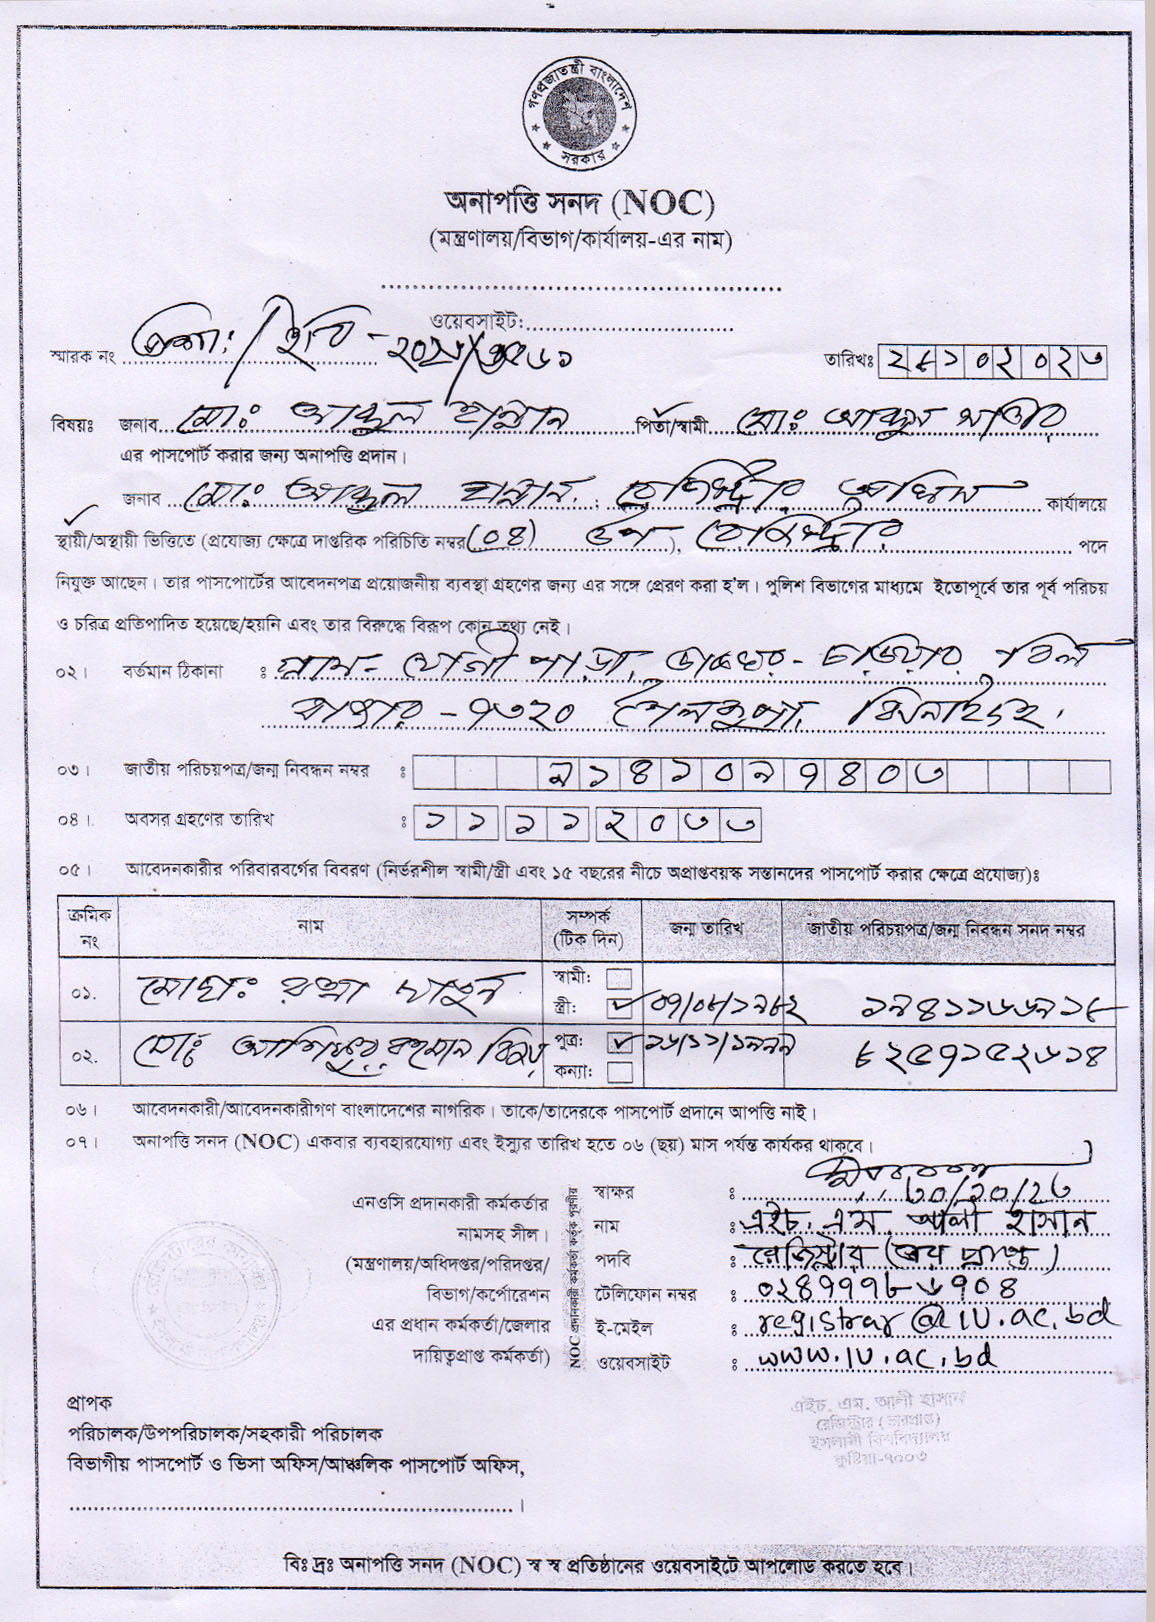 গণপ্রজাতন্ত্রী বাংলাদেশ
সরকার
অনাপত্তি সনদ (NOC)
(মন্ত্রণালয়/বিভাগ/কার্যালয়-এর নাম)
ওয়েবসাইট:
স্মারক নং প্রশা:/ইবি-
তারিখঃ ২৮১০২০২৩
বিষয়ঃ জনাব মোঃ আব্দুল হান্নান পিতা/স্বামী মোঃ আব্দুস সাত্তার
এর পাসপোর্ট করার জন্য অনাপত্তি প্রদান।
জনাব মোঃ আব্দুল হান্নান, রেজিস্ট্রার অফিস কার্যালয়ে
স্থায়ী/অস্থায়ী ভিত্তিতে (প্রযোজ্য ক্ষেত্রে দাপ্তরিক পরিচিতি নম্বর (০৪) উপ ), রেজিস্ট্রার পদে
নিযুক্ত আছেন। তার পাসপোর্টের আবেদনপত্র প্রয়োজনীয় ব্যবস্থা গ্রহণের জন্য এর সঙ্গে প্রেরণ করা হ'ল। পুলিশ বিভাগের মাধ্যমে ইতোপূর্বে তার পূর্ব পরিচয়
ও চরিত্র প্রতিপাদিত হয়েছে/হয়নি এবং তার বিরুদ্ধে বিরূপ কোন তথ্য নেই।
০২। বর্তমান ঠিকানা : গ্রাম- যোগীপাড়া, ডাকঘর-
বাজার -৭৩২০ শৈলকুপা, ঝিনাইদহ।
০৩। জাতীয় পরিচয়পত্র/জন্ম নিবন্ধন নম্বর : ৯১৪১০৯৭৪০৩
০৪। অবসর গ্রহণের তারিখ : ১১১১২০৩৩
০৫। আবেদনকারীর পরিবারবর্গের বিবরণ (নির্ভরশীল স্বামী/স্ত্রী এবং ১৫ বছরের নীচে অপ্রাপ্তবয়স্ক সন্তানদের পাসপোর্ট করার ক্ষেত্রে প্রযোজ্য)ঃ
ক্রমিক নং নাম সম্পর্ক (টিক দিন) জন্ম তারিখ জাতীয় পরিচয়পত্র/জন্ম নিবন্ধন সনদ নম্বর
০১. মোছাঃ রত্না খাতুন স্বামী:
স্ত্রী: ✓ ০৭/০৮/১৯৮২ ১৯৪১১৬৬৯১৮
০২. মোঃ আশিকুর রহমান পুত্র: ✓ ১৬/১১/১৯৯৯ ৮২৫৭১৫২৬১৪
কন্যা:
০৬। আবেদনকারী/আবেদনকারীগণ বাংলাদেশের নাগরিক। তাকে/তাদেরকে পাসপোর্ট প্রদানে আপত্তি নাই।
০৭। অনাপত্তি সনদ (NOC) একবার ব্যবহারযোগ্য এবং ইস্যুর তারিখ হতে ০৬ (ছয়) মাস পর্যন্ত কার্যকর থাকবে।
এনওসি প্রদানকারী কর্মকর্তার
নামসহ সীল।
(মন্ত্রণালয়/অধিদপ্তর/পরিদপ্তর/
বিভাগ/কর্পোরেশন
এর প্রধান কর্মকর্তা/জেলার
দায়িত্বপ্রাপ্ত কর্মকর্তা)
NOC প্রদানকারী কর্মকর্তা কর্তৃক পূরণীয়
স্বাক্ষর : ৩০/১০/২৩
নাম : এইচ. এম. আলী হাসান
পদবি : রেজিস্ট্রার (ভার প্রাপ্ত)
টেলিফোন নম্বর : ০২৪৭৭৭৮৬৭০৪
ই-মেইল : registrar@iu.ac.bd
ওয়েবসাইট : www.iu.ac.bd
এইচ. এম. আলী হাসান
রেজিস্ট্রার (ভারপ্রাপ্ত)
ইসলামী বিশ্ববিদ্যালয়
কুষ্টিয়া-৭০০৩
প্রাপক
পরিচালক/উপপরিচালক/সহকারী পরিচালক
বিভাগীয় পাসপোর্ট ও ভিসা অফিস/আঞ্চলিক পাসপোর্ট অফিস,
।
বিঃ দ্রঃ অনাপত্তি সনদ (NOC) স্ব স্ব প্রতিষ্ঠানের ওয়েবসাইটে আপলোড করতে হবে।